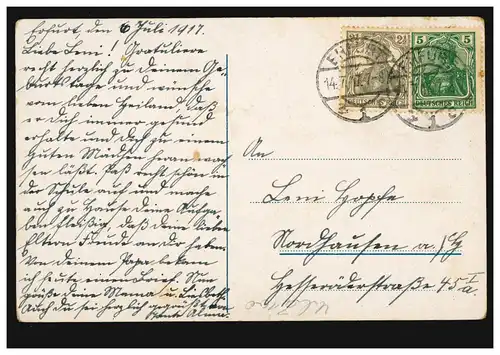 Erfurt, den 6 Juli 1917.
Liebe Leni! Gratuliere
recht herzlich zu deinem Ge-
burtstage und wünsche
vom lieben Heiland daß
er dich immer gesund
erhalte und dich zu einem
guten Mädchen heran wach-
sen läßt. Paß recht schön in
der Schule auch und mache
auch zu Hause deine Aufga-
ben fleißig, daß deine lieben
Eltern Freude an dir haben.
Von deinem Papa bekam
ich heute einen Brief. Nun
grüße deine Mama u. Liesbeth
Auch du sei herzlich gegrüßt von
Tante Alma.
2½
5
DEUTSCHES REICH
DEUTSCHES REICH
ERFURT
14.7.17
An
Leni Hopfe
Nordhausen a/H
Hesseröderstraße 45 I